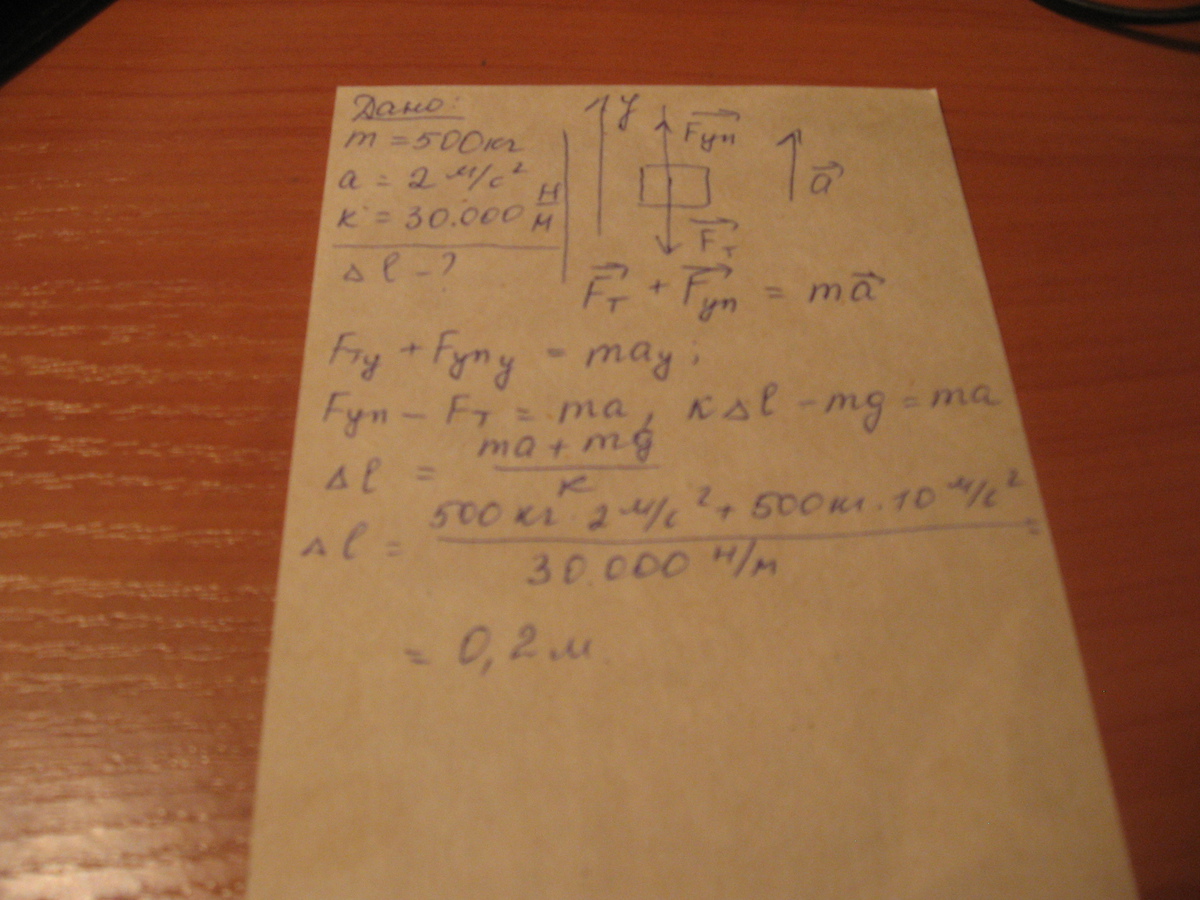 Дано:
m = 500кг
a = 2 м/с²
к = 30.000 Н/м
Δl - ?
y
Fуп
a
Fт
Fт + Fуп = ma
Fтy + Fупy = may;
Fуп - Fт = ma, кΔl - mg = ma
Δl = (ma + mg)/к
Δl = (500кг · 2 м/с² + 500кг · 10 м/с²)/(30.000 н/м) =
= 0,2 м.